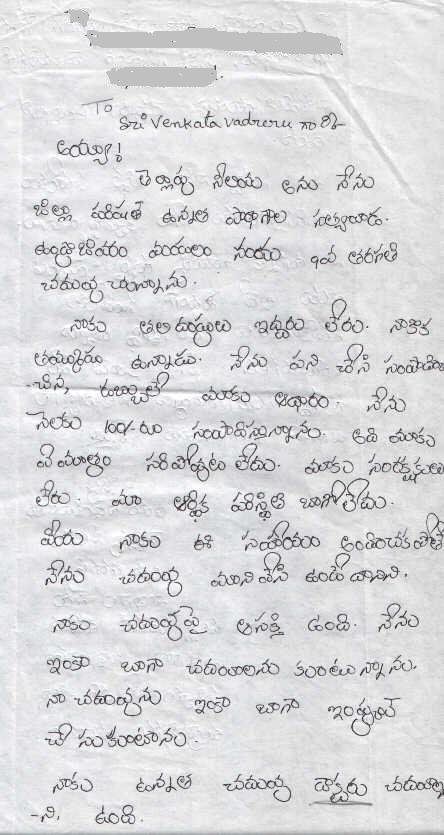 To
Sri Venkata Vadreru గారికి
అయ్యా!
తెల్లాపు నీలయ అను నేను
జిల్లా పరిషత్ ఉన్నత పాఠశాల సత్యవాడ.
ఉండ్రాజవరం మండలం నందు 10వ తరగతి
చదువు చున్నాను.
నాకు తల్లిదండ్రులు ఇద్దరు లేరు. నాకొక
తమ్ముడు ఉన్నాడు. నేను పని చేసి సంపాదిం
-చిన, డబ్బులే మాకు ఆధారం. నేను
నెలకు 100/- రూ సంపాదిస్తున్నాను. అది మాకు
ఏ మాత్రం సరిపోవుట లేదు. మాకు సంరక్షకులు
లేరు. మా ఆర్థిక పరిస్థితి బాగోలేదు.
మీరు నాకు ఈ సహాయం అందించక పోతే
నేను చదువు మాని వేసి ఉండే దానిని.
నాకు చదువుపై ఆసక్తి ఉంది. నేను
ఇంకా బాగా చదవాలను కుంటున్నాను.
నా చదువును ఇంకా బాగా ఇంప్రూవ్
చేసుకుంటాను.
నాకు ఉన్నత చదువు డాక్టరు చదవాల
-ని, ఉంది.